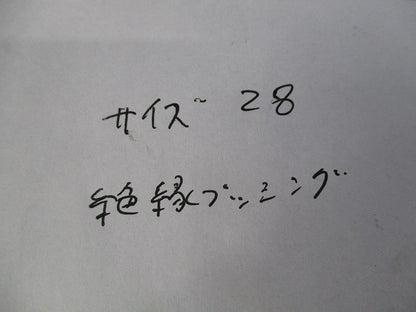 サイズ 28
絶縁ブッシング